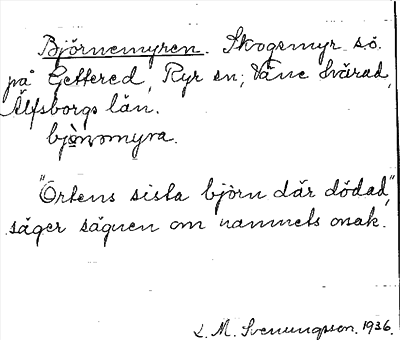 Björnemyren. Skogsmyr s.ö.
på Gettered, Ryr sn; Väne härad,
Älfsborgs län.
bjö̀nəmyra.
"Ortens sista björn där dödad",
säger sägnen om namnets orsak.
L. M. Svenungsson. 1936.